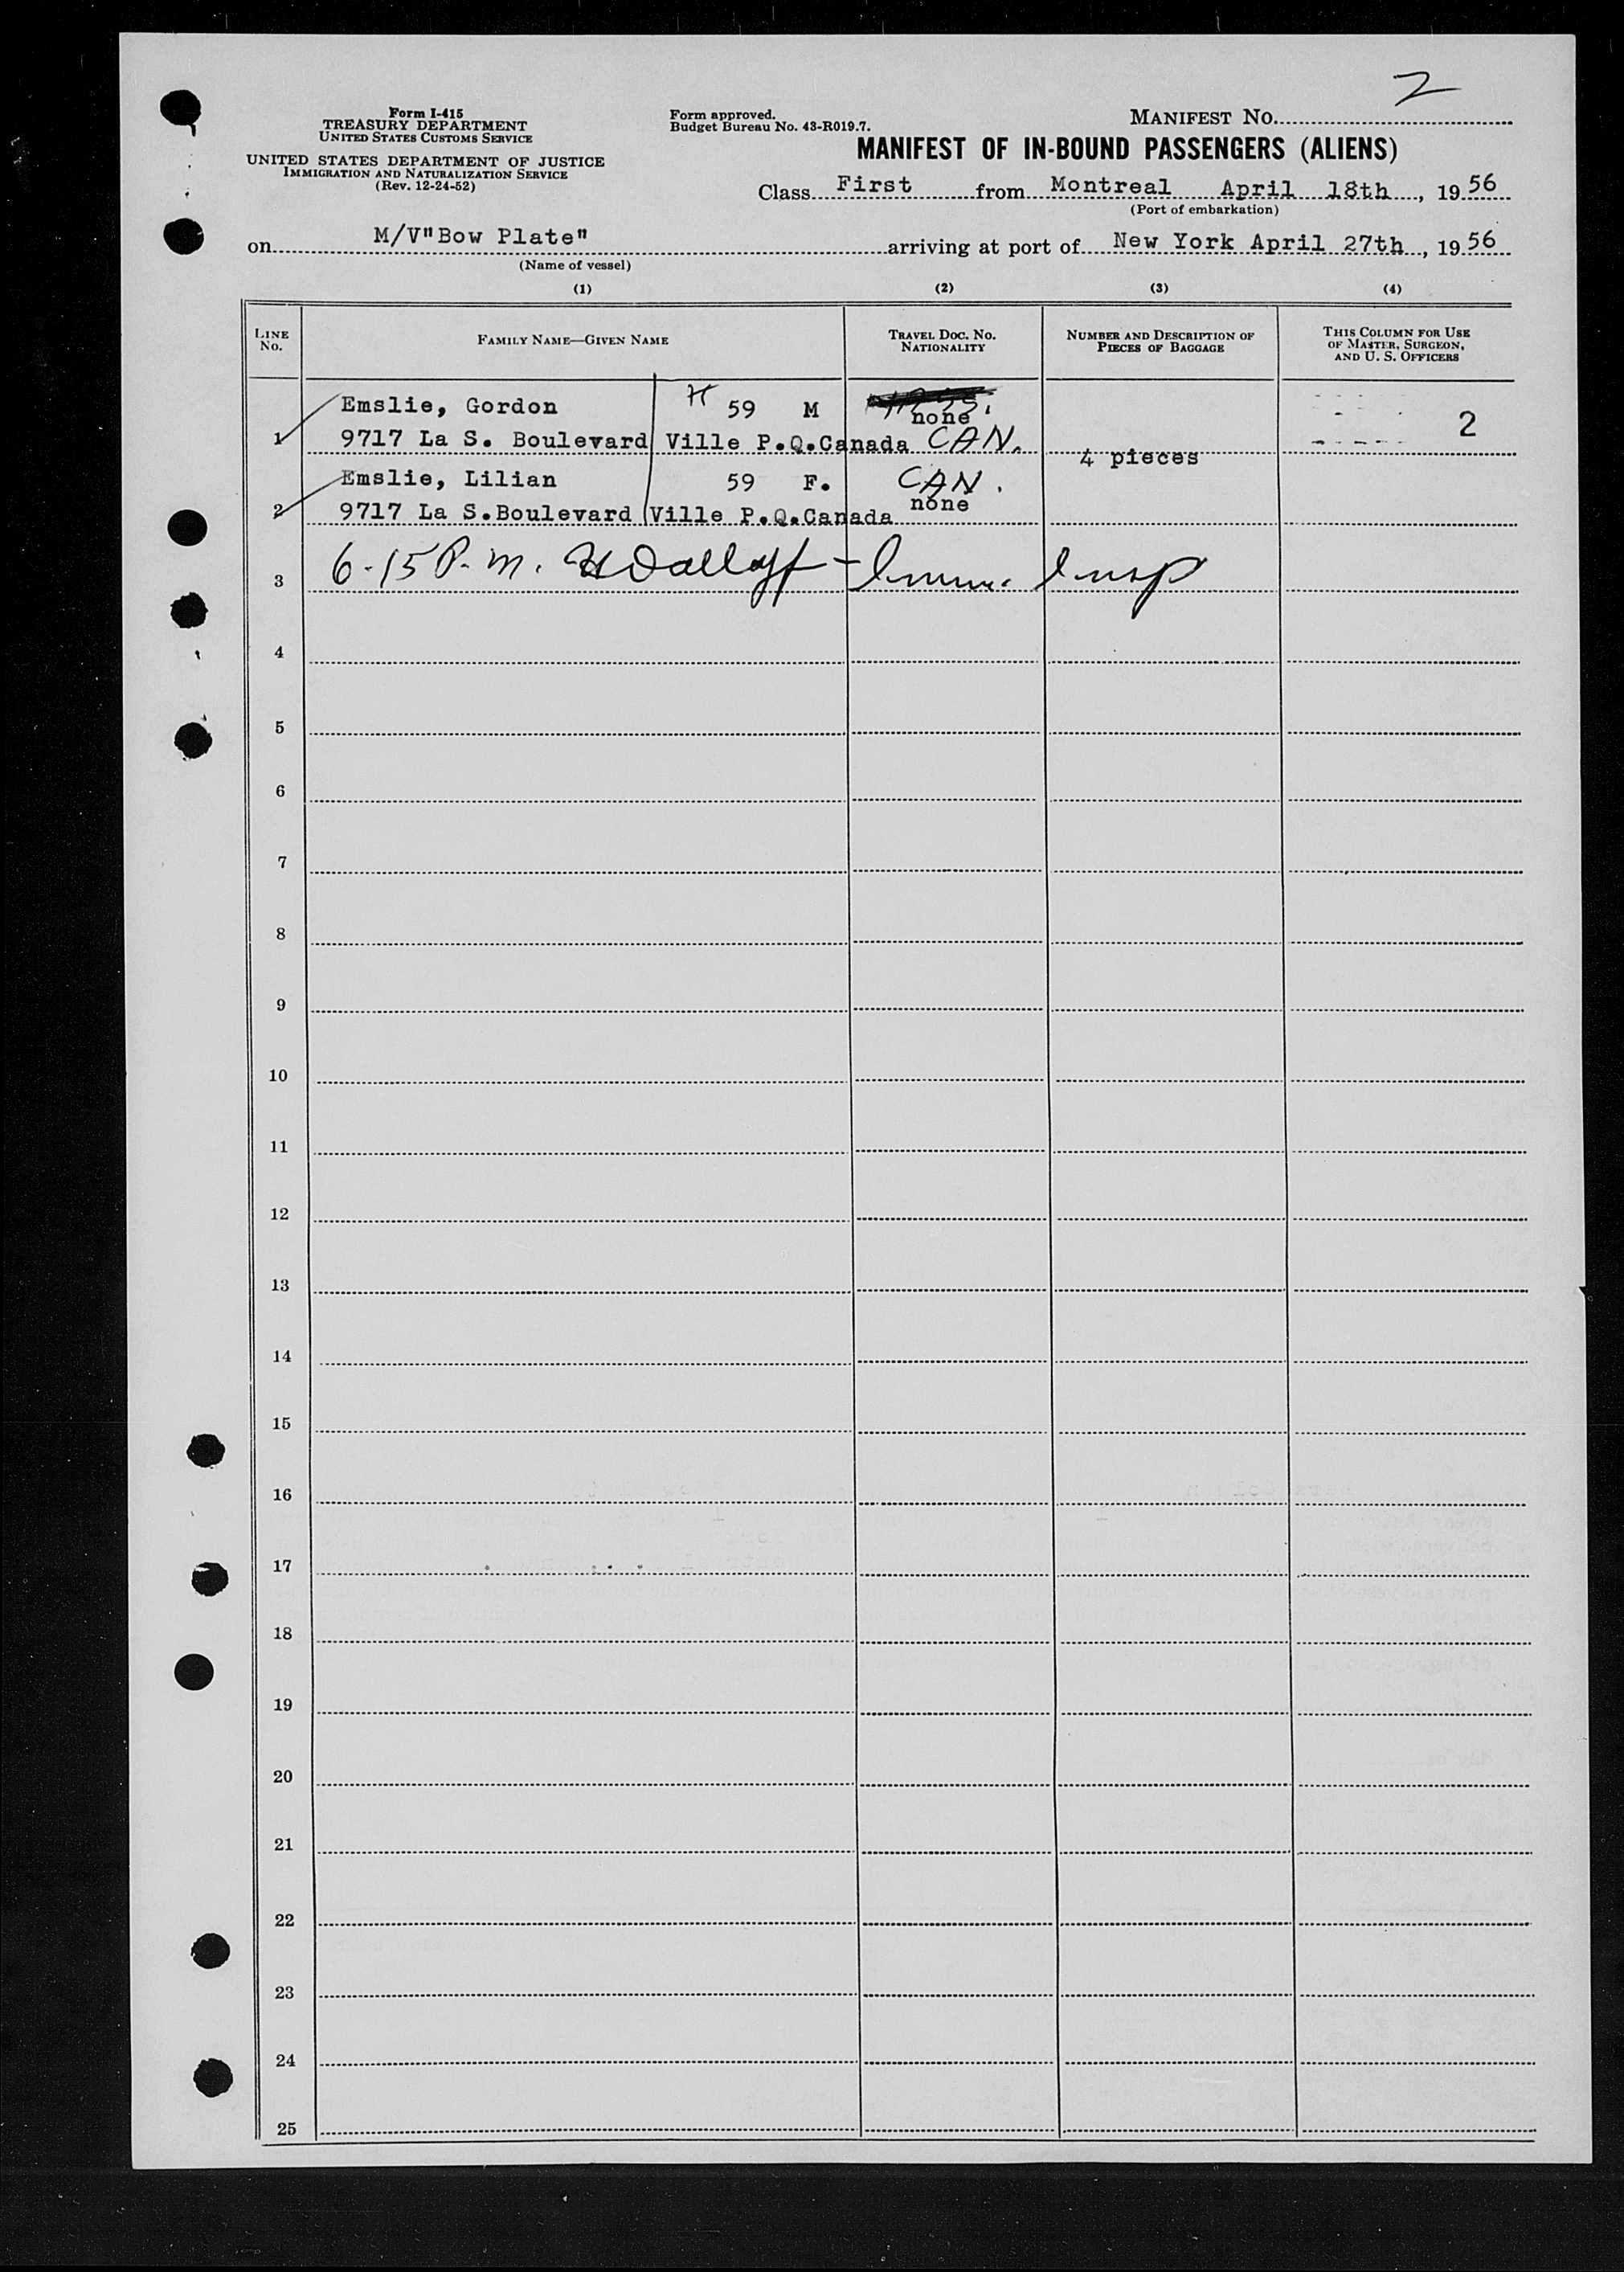 2
Form I-415
TREASURY DEPARTMENT
UNITED STATES CUSTOMS SERVICE
UNITED STATES DEPARTMENT OF JUSTICE
IMMIGRATION AND NATURALIZATION SERVICE
(Rev. 12-24-52)
Form approved.
Budget Bureau No. 43-R019.7.
MANIFEST NO.
MANIFEST OF IN-BOUND PASSENGERS (ALIENS)
Class First from Montreal April 18th, 1956
(Port of embarkation)
on M/V"Bow Plate" arriving at port of New York April 27th, 1956
(Name of vessel)
(1) (2) (3) (4)
LINE NO. FAMILY NAME—GIVEN NAME TRAVEL DOC. NO. NATIONALITY NUMBER AND DESCRIPTION OF PIECES OF BAGGAGE THIS COLUMN FOR USE OF MASTER, SURGEON, AND U. S. OFFICERS
Emslie, Gordon H 59 M none 2
1 9717 La S. Boulevard Ville P.Q.Canada CAN.
4 pieces
Emslie, Lilian 59 F. CAN.
2 9717 La S.Boulevard Ville P.Q.Canada none
3 6-15 P.m. - Imm. Insp
4
5
6
7
8
9
10
11
12
13
14
15
16
17
18
19
20
21
22
23
24
25